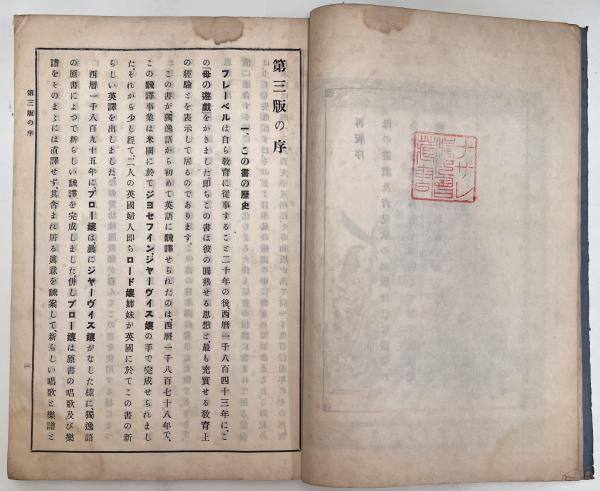 第三版の序
一 この書の歴史
フレーベルは自ら教育に從事すること二十年の後西暦一千八百四十三年に、こ
の「母の遊戲」をかきました即ちこの書は彼の圓熟せる思想と、最も充實せる教育上
の經驗とを表示して居るのであります。
この書が獨逸語から初めて英語に飜譯せられたのは、西暦一千八百七十八年で、
この飜譯事業は米國に於てジヨセフインジヤーヴイス孃の手で完成せられまし
た。それから少し經て、二人の英國婦人即ちロード孃姉妹が英國に於てこの書の新
らしい英譯を出しました。
西暦一千八百九十五年にブロー孃は曩にジヤーヴイス孃がなした樣に、獨逸語
の原書によつて新らしい飜譯を完成しました。併しブロー孃は原書の唱歌及び樂
譜をそのまゝには直譯せず、其含まれ居る眞意を飜案して、新らしい唱歌と樂譜と
第三版の序
一